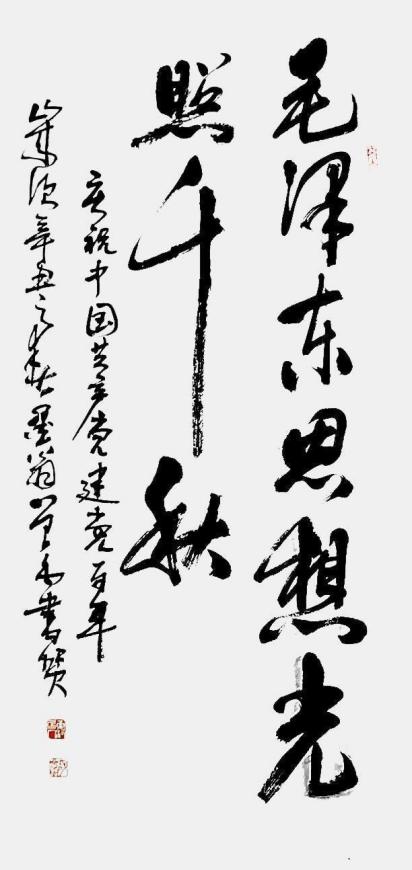 毛泽东思想光
照千秋
庆祝中国共产党建党百年
歲次辛丑之秋墨翁書贺